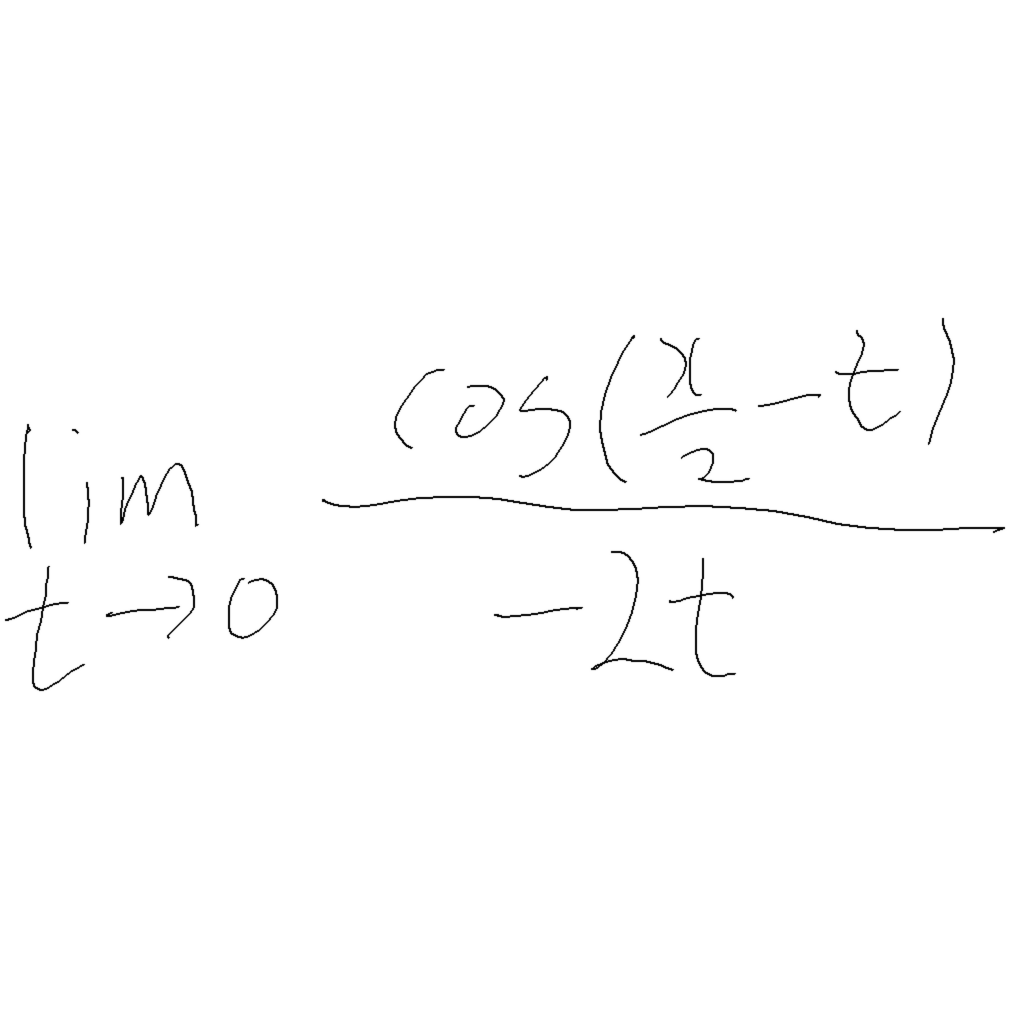 lim_{t→0} \frac{cos(\frac{x}{2} - t)}{-2t}